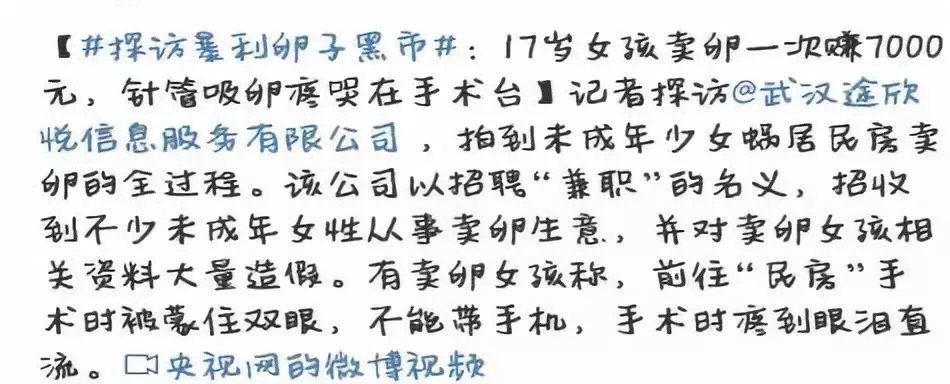 【#探访暴利卵子黑市#：17岁女孩卖卵一次赚7000
元，针管吸卵疼哭在手术台】记者探访@武汉途欣
悦信息服务有限公司，拍到未成年少女蜗居民房卖
卵的全过程。该公司以招聘“兼职”的名义，招收
到不少未成年女性从事卖卵生意，并对卖卵女孩相
关资料大量造假。有卖卵女孩称，前往“民房”手
术时被蒙住双眼，不能带手机，手术时疼到眼泪直
流。央视网的微博视频